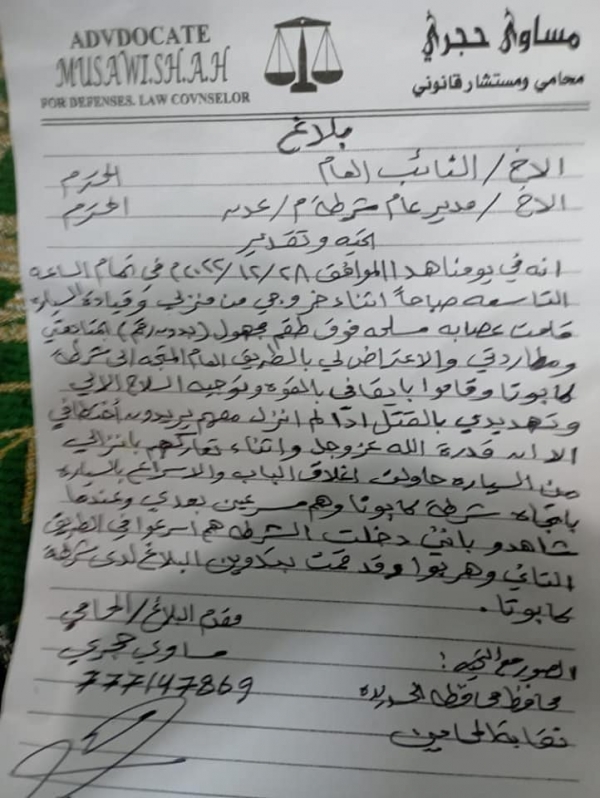 ADVDOCATE
MUSAWI.SH.A.H
FOR DEFENSES. LAW COVNSELOR
مساوى حجري
محامي ومستشار قانوني
بلاغ
الاخ / النائب العام المحترم
الاخ / مدير عام شرطة م/عدن المحترم
تحيه وتقدير
انه في يومنا هذا الموافق ٢٠٢٢/١٢/٢٨م في تمام الساعه
التاسعه صباحاً اثناء خروجي من منزلي وقيادة السياره
قامت عصابه مسلحه فوق طقم مجهول (بدون رقم) بمتابعتي
ومطاردتي والاعتراض لي بالطريق العام المتجه الى شرطة
كابوتا وقاموا بايقافي بالقوه وتوجيه السلاح الالي
وتهديدي بالقتل اذا لم انزل معهم يريدون أختطافي
الا ان قدرة الله عزوجل واثناء تعاركهم بانزالي
من السياره حاولت اغلاق الباب والاسراع بالسياره
باتجاه شرطة كابوتا وهم مسرعين بعدي وعندما
شاهدو بانني دخلت الشرطه هم اسرعوا في الطريق
الثاني وهربوا وقد قمت بتدوين البلاغ لدى شرطة
كابوتا.
مقدم البلاغ/المحامي
مساوى حجري
777147869
الصور مع التحيه:
محافظ محافظة الحديده
نقابة المحامين